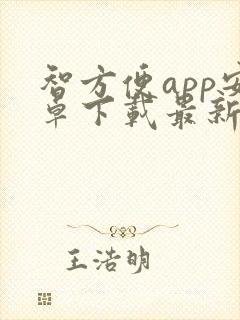 智方便app安
卓下載最新
王浩明